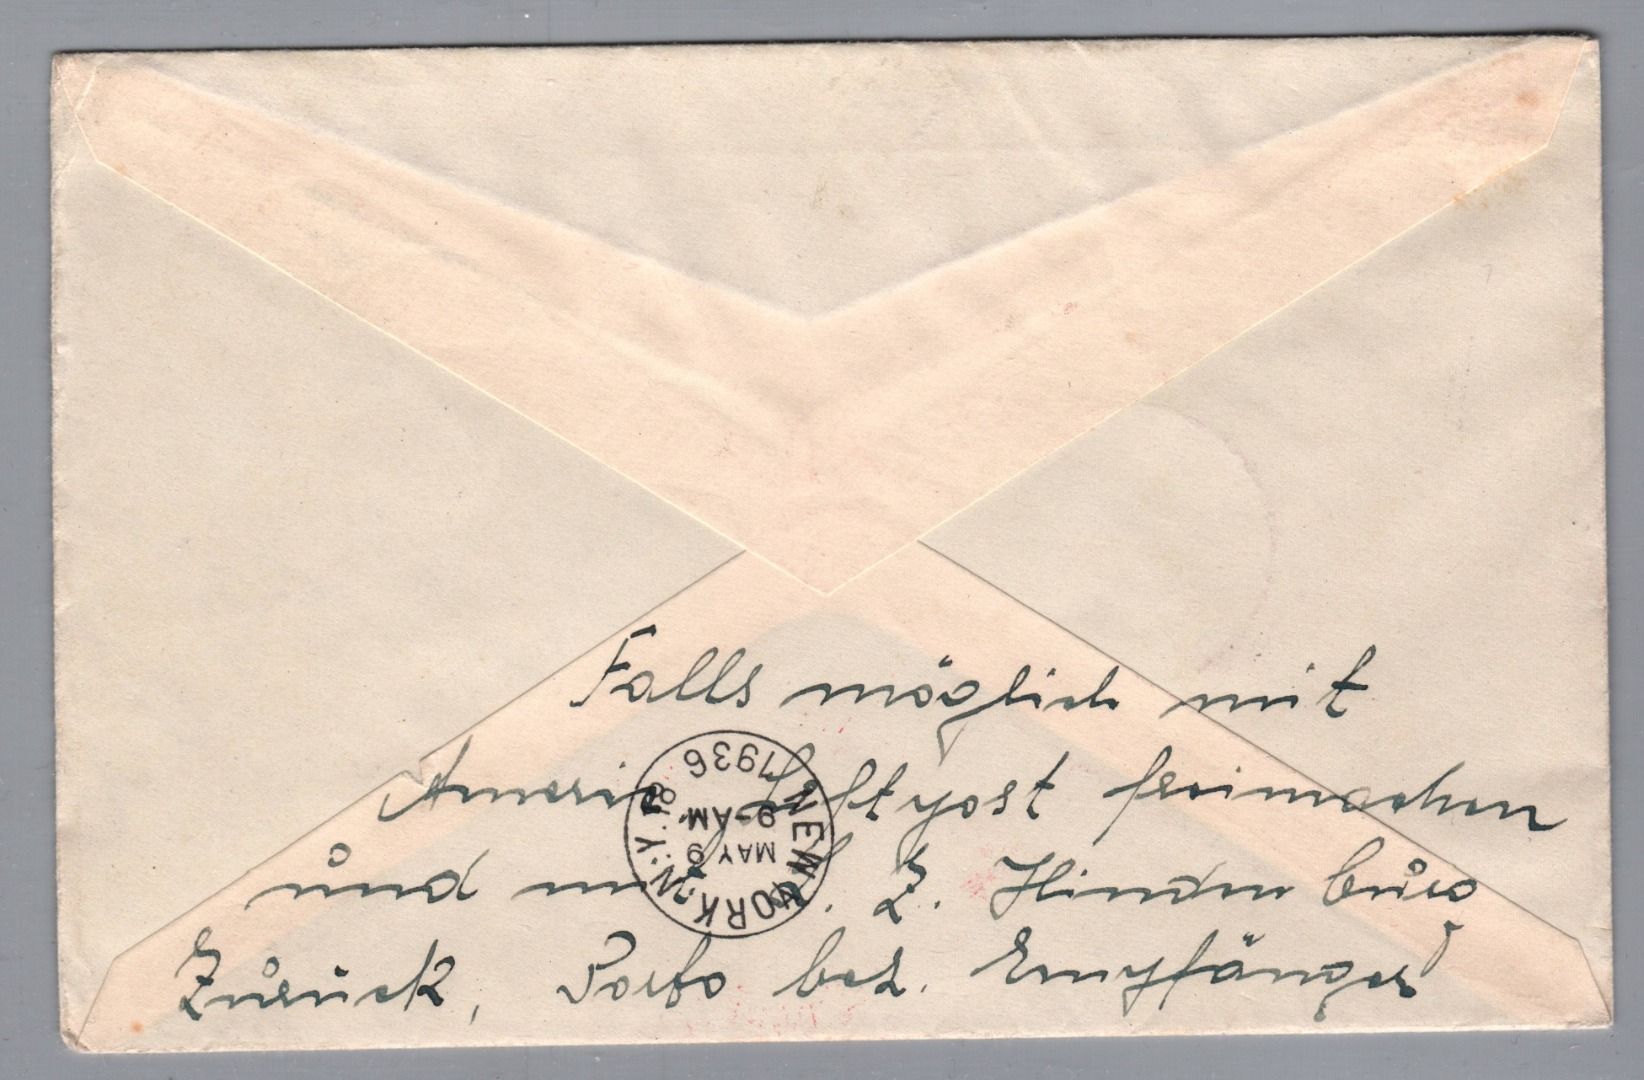 Falls möglich mit
Amerik Luftpost freimachen
und mit d. L. Z. Hindenburg
Zurück, Porto bez. Empfänger
NEW YORK, N.Y.
MAY 9
9-AM
1936